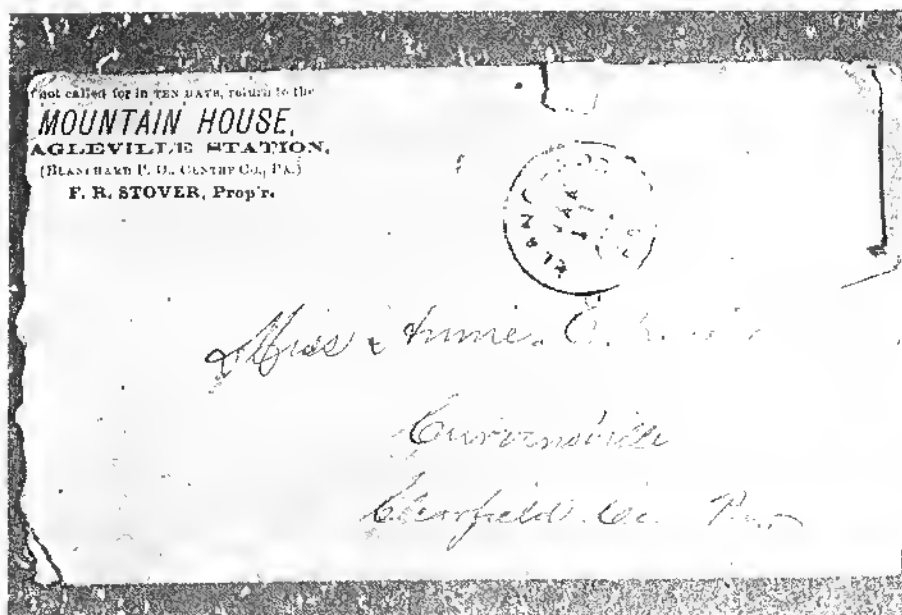 not called for in TEN DAYS, return to the
MOUNTAIN HOUSE,
AGLEVILLE STATION,
(BLANCHARD P. O., CENTRE CO., PA.)
F. R. STOVER, Prop'r.
Miss Annie
Curwensville
Clearfield Co. Pa